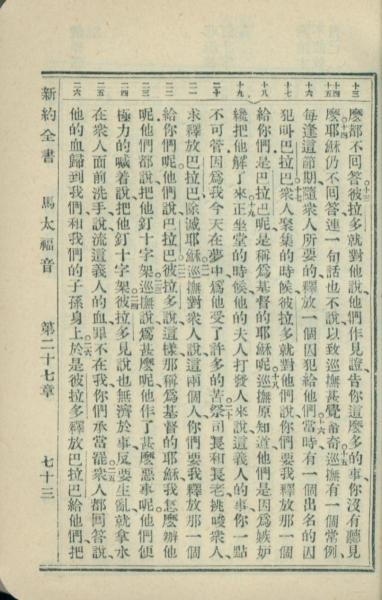 麼都不回答彼拉多就對他說他們作見證告你這麼多的事你沒有聽見
麼耶穌仍不回答連一句話也不說以致巡撫甚覺希奇巡撫有一個常例
每逢這節期隨衆人所要的釋放一個囚犯給他們當時有一個出名的囚
犯叫巴拉巴衆人聚集的時候彼拉多就對他們說你們要我釋放那一個
給你們是巴拉巴呢是稱爲基督的耶穌呢巡撫原知道他們是因爲嫉妒
纔把他解了來正坐堂的時候他的夫人打發人來說這義人的事你一點
不可管因爲我今天在夢中爲他受了許多的苦祭司長和長老挑唆衆人
求釋放巴拉巴除滅耶穌巡撫對衆人說這兩個人你們要我釋放那一個
給你們呢他們說巴拉巴彼拉多說這樣那稱爲基督的耶穌我怎麼辦他
呢他們都說把他釘十字架巡撫說爲甚麼呢他作了甚麼惡事呢他們便
極力的喊着說把他釘十字架彼拉多見說也無濟於事反要生亂就拿水
在衆人面前洗手說流這義人的血罪不在我你們承當罷衆人都回答說
他的血歸到我們和我們的子孫身上於是彼拉多釋放巴拉巴給他們把
新約全書 馬太福音 第二十七章 七十三